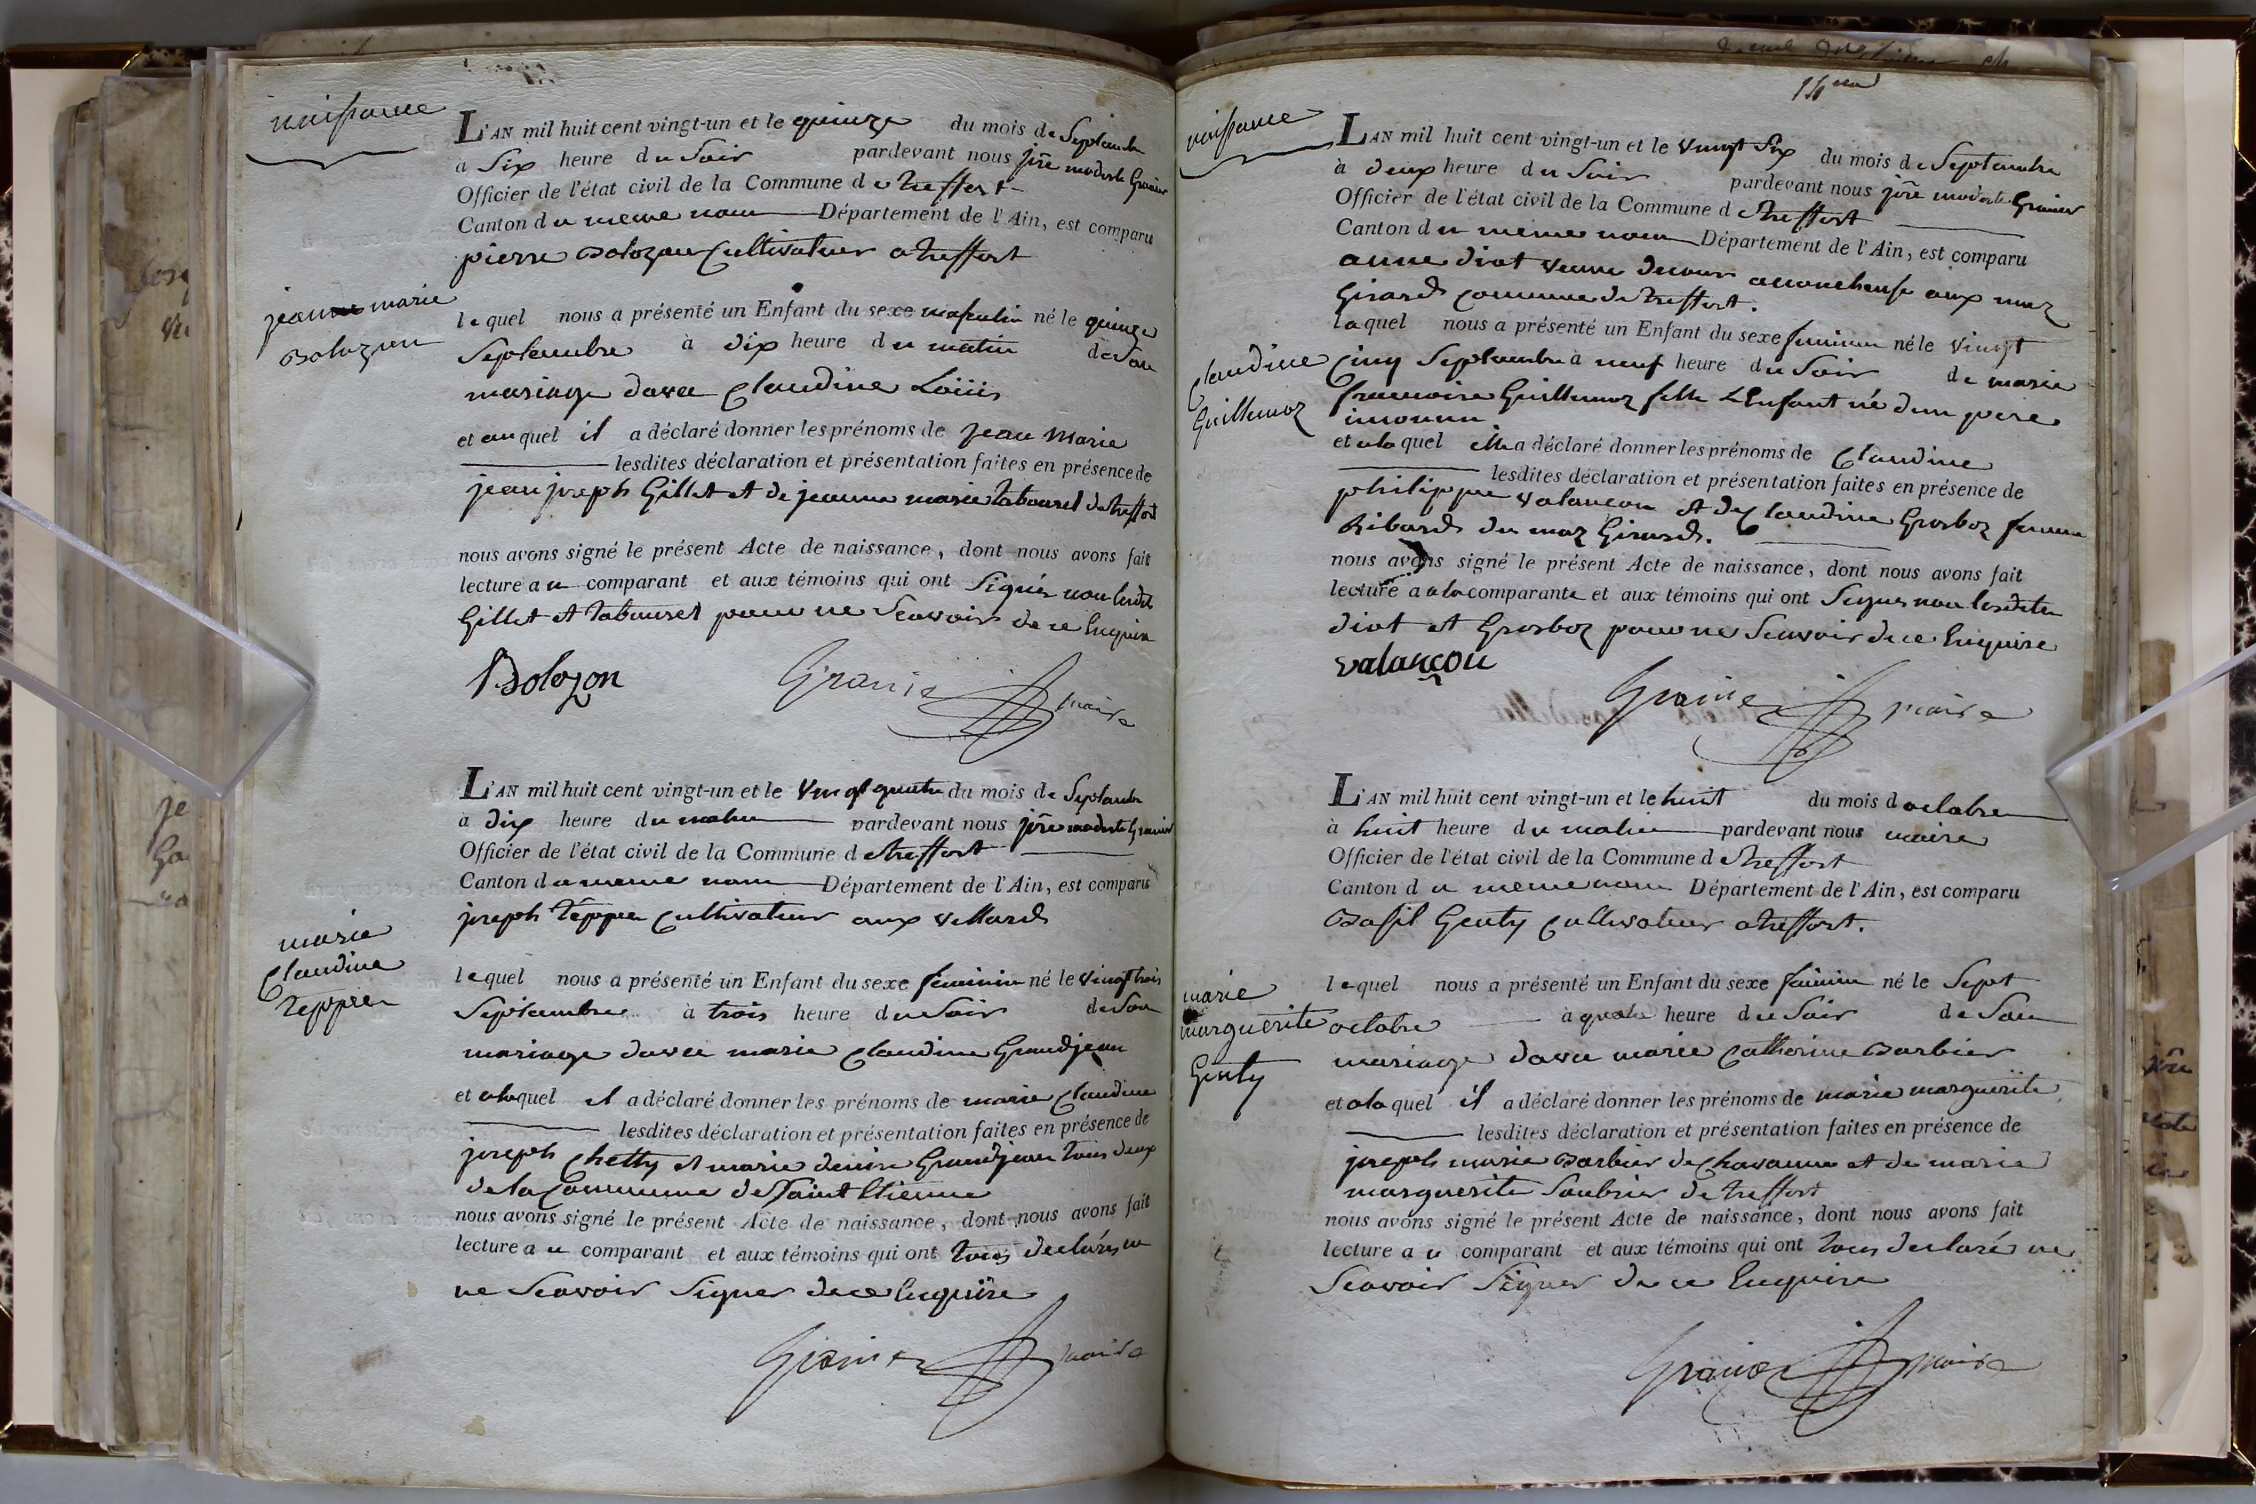 naissance
L'AN mil huit cent vingt-un et le quinze du mois de Septembre
à Six heure du Soir pardevant nous jph modeste Granier
Officier de l'état civil de la Commune de treffort
Canton du meme nom Département de l'Ain, est comparu
pierre Bolozon Cultivateur a treffort
jean marie
Bolozon
lequel nous a présenté un Enfant du sexe masculin né le quinze
Septembre à dix heure du matin de Son
mariage davec Claudine Loüis
et auquel il a déclaré donner les prénoms de jean Marie
lesdites déclaration et présentation faites en présence de
jean joseph Gillet et de jeanne marie tabouret de treffort
nous avons signé le présent Acte de naissance, dont nous avons fait
lecture au comparant et aux témoins qui ont Signés non lesdits
Gillet et tabouret pour ne Scavoir de ce Enquira
Bolozon Granier maire
L'AN mil huit cent vingt-un et le vingt quatre du mois de Septembre
à dix heure du matin pardevant nous jph modeste Granier
Officier de l'état civil de la Commune de treffort
Canton du meme nom Département de l'Ain, est comparu
joseph téppier Cultivateur aux villards
marie
Claudine
teppier
lequel nous a présenté un Enfant du sexe feminin né le vingt trois
Septembre à trois heure du Soir de Son
mariage davec marie Claudine Grandjean
et alaquel il a déclaré donner les prénoms de marie Claudine
lesdites déclaration et présentation faites en présence de
joseph Chetty et marie denise Grandjean tous deux
de la Commune de Saint Etienne
nous avons signé le présent Acte de naissance, dont nous avons fait
lecture au comparant et aux témoins qui ont tous declarés ne
ne Scavoir Signer de ce Enquire
Granier maire
naissance
L'AN mil huit cent vingt-un et le vingt Six du mois de Septembre
à deux heure du Soir pardevant nous jph modeste Granier
Officier de l'état civil de la Commune de treffort
Canton du meme nom Département de l'Ain, est comparu
anne diot veuve accoucheuse aux maz
Girard Commune de treffort.
Claudine
Guillemoz
laquel nous a présenté un Enfant du sexe feminin né le vingt
Cinq Septembre à neuf heure du Soir de marie
francoise Guillemoz fille L'Enfant né d'un pere
inconnu
et alaquel elle a déclaré donner les prénoms de Claudine
lesdites déclaration et présentation faites en présence de
philippe valancon et de Claudine Grosboz femme
Ribard du maz Girard.
nous avons signé le présent Acte de naissance, dont nous avons fait
lecture a la comparante et aux témoins qui ont Signés non lesdites
diot et Grosboz pour ne Scavoir de ce Enquire
valançon
Granier maire
L'AN mil huit cent vingt-un et le huit du mois doctobre
à huit heure du matin pardevant nous maire
Officier de l'état civil de la Commune de treffort
Canton du meme nom Département de l'Ain, est comparu
Basil Genty Cultivateur a treffort.
marie
marguerite
Genty
lequel nous a présenté un Enfant du sexe feminin né le Sept
octobre à quatre heure du Soir de Son
mariage davec marie Catherine Barbier
et alaquel il a déclaré donner les prénoms de marie marguerite
lesdites déclaration et présentation faites en présence de
joseph marie Barbier de Chavanne et de marie
marguerite Saubrier de treffort
nous avons signé le présent Acte de naissance, dont nous avons fait
lecture au comparant et aux témoins qui ont tous declarés ne
Scavoir Signer de ce Enquire
Granier maire